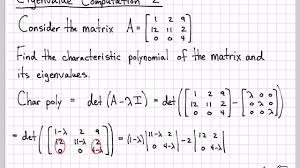 Eigenvalue Computation 2
Consider the matrix A = [1 2 9; 12 11 2; 0 0 4]
Find the characteristic polynomial of the matrix and
its eigenvalues.
Char poly = det(A-λI) = det([1 2 9; 12 11 2; 0 0 4] - [λ 0 0; 0 λ 0; 0 0 λ])
= det([1-λ 2 9; 12 11-λ 2; 0 0 4-λ]) = (1-λ)|11-λ 2; 0 4-λ| - 2|12 2; 0 4-λ|